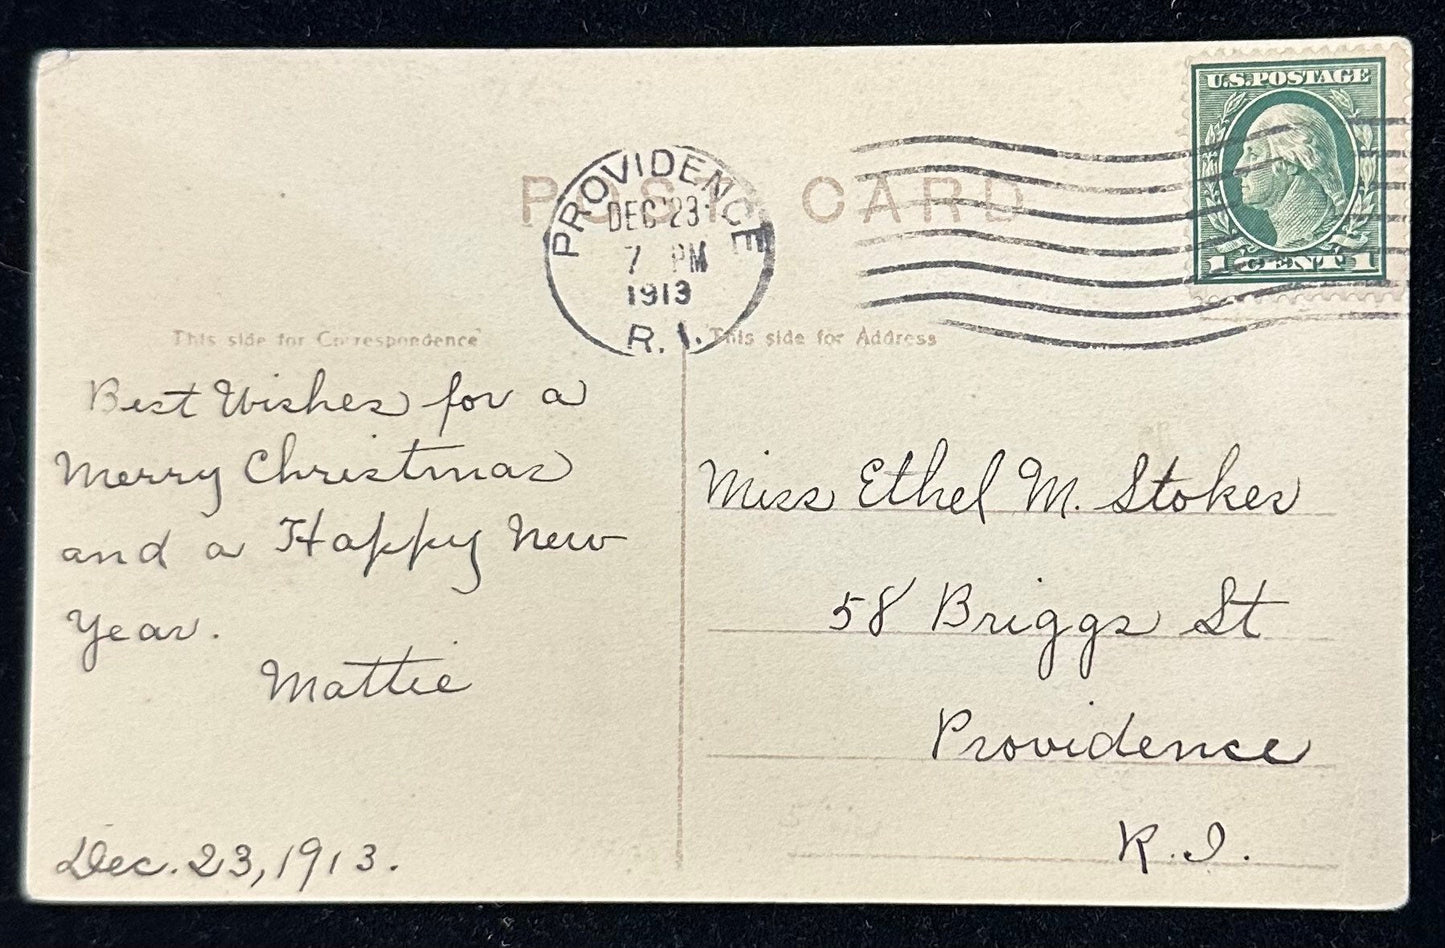 U.S. POSTAGE
1 CENT 1
POST CARD
PROVIDENCE
DEC 23
7 PM
1913
R.I.
This side for Correspondence
This side for Address
Best Wishes for a
Merry Christmas
and a Happy New
Year.
Mattie
Dec. 23, 1913.
Miss Ethel M. Stokes
58 Briggs St
Providence
R.I.